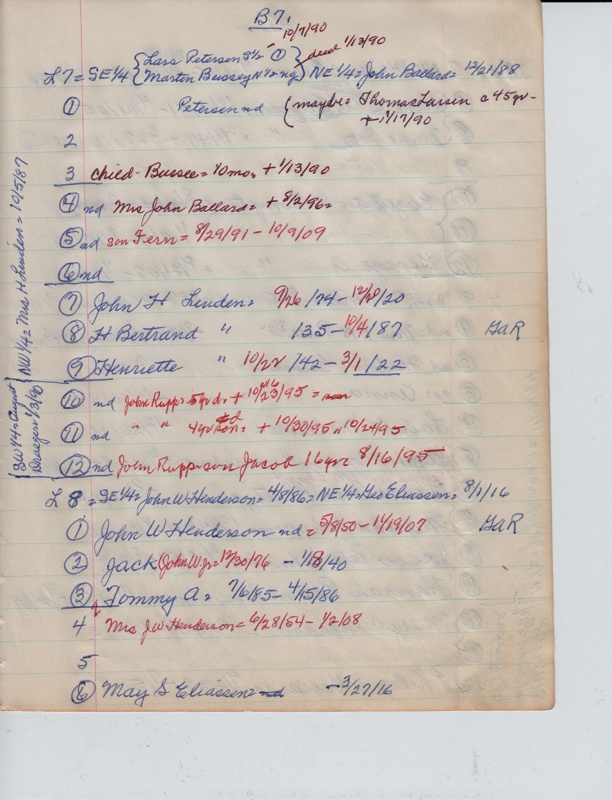 B7.
10/7/90
L 7 = SE 1/4 { Lars Petersen S 1/2 = ① } deed 1/13/90
Marten Bussey N 1/2 = ng } NE 1/4 = John Ballard = 12/21/88
① Petersen nd { maybe = Thomas Larsen c 45 yr -
+ 1/17/90
2
3 child - Bussee = 10 mo. + 1/13/90
④ nd Mrs John Ballard = + 8/2/96 =
⑤ nd son Fern = 8/29/91 - 10/9/09
⑥ nd
⑦ John H Linden = 9/26/74 - 12/28/20
⑧ H Bertrand " 135 - 10/4/87 GaR
⑨ Henriette " 10/22/42 - 3/1/22
⑩ nd John Rupp = 5 yr d. + 10/23/95 =
⑪ nd " " 4 yr son = + 10/30/95 " 10/24/95
⑫ nd John Rupp = son Jacob 16 yr 8/16/95
{ SW 1/4 = August Draeger 1/3/90 { NW 1/4 = Mrs H Linden = 10/5/87
L 8 = SE 1/4 = John W Henderson = 4/8/86 = NE 1/4 = Geo Eliassen = 8/1/16
① John W Henderson nd = 5/8/50 - 11/19/07 GaR
② Jack (John W Jr = 12/30/76 - 1/18/40
③ Tommy A = 7/6/85 - 4/15/86
4 Mrs J W Henderson = 6/28/54 - 1/2/08
5
⑥ May S Eliassen = nd - 3/27/16